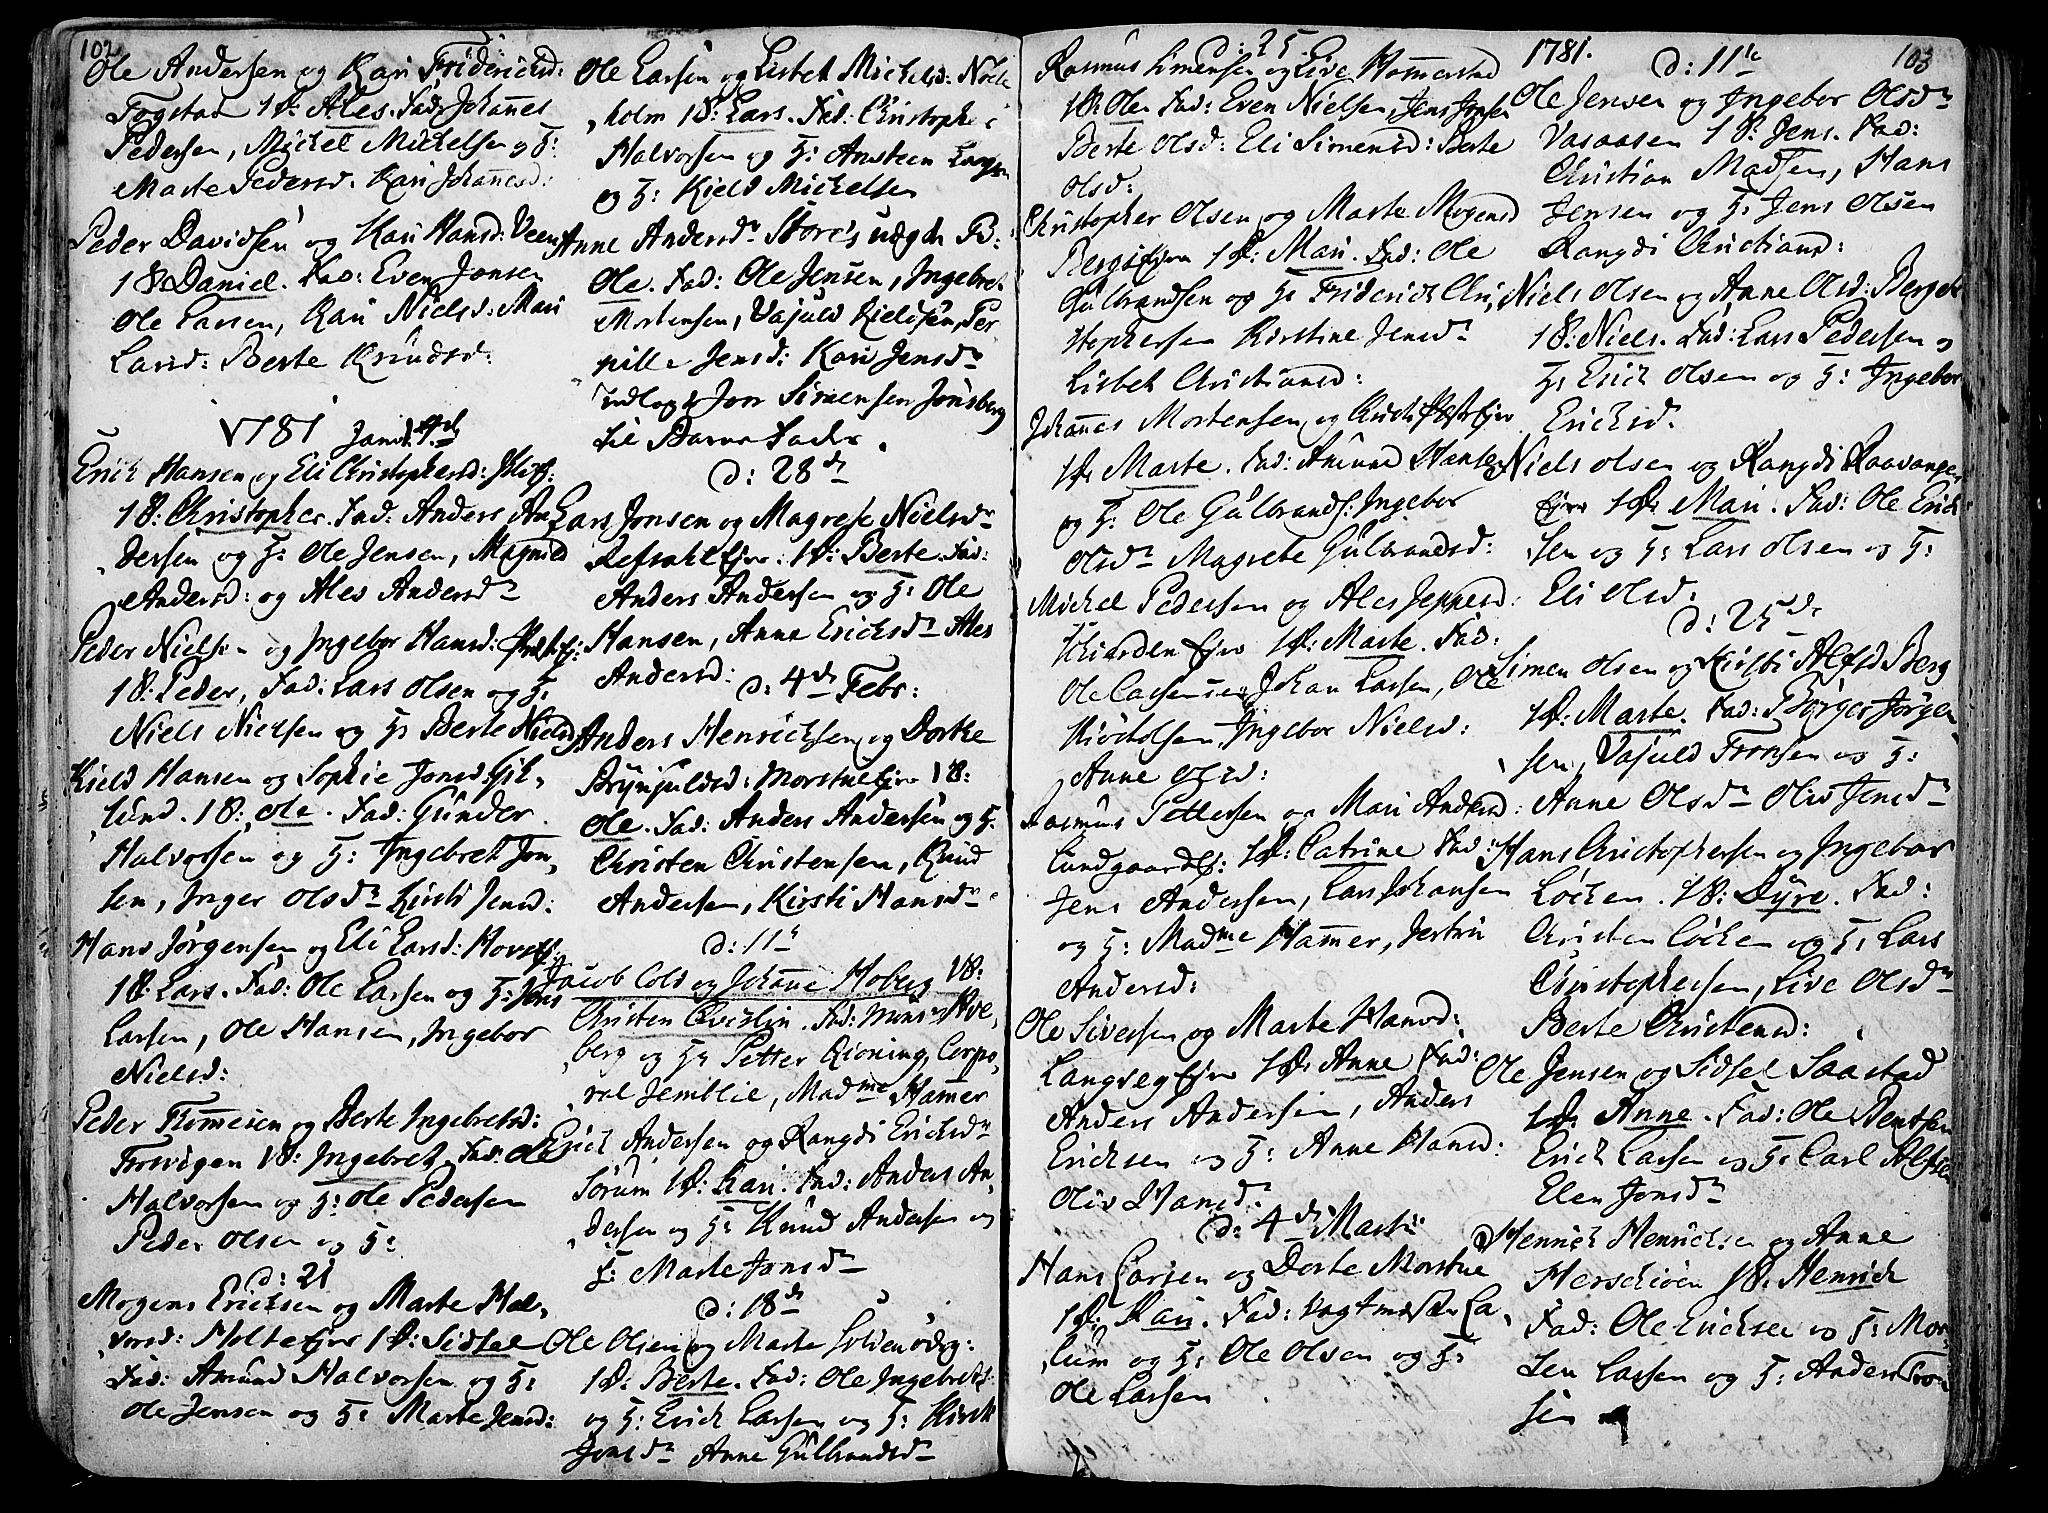 102
Ole Andersen og Kari Friderichsd:
Togstad 1 P: Ales. Fad: Johannes
Pedersen, Michel Michelsen og H:
Marte Pedersd. Kari Johannesd:
Peder Davidsen og Kari Hansd: Veen
1 S: Daniel. Fad: Even Jonsen
Ole Larsen, Kari Nielsd: Mari
Larsd: Berte Knudsd:
1781 Janv:
Erich Hansen og Eli Christophersd:
1 S: Christopher. Fad: Anders An
dersen og H: Ole Jensen, Magnild
Andersd: og Ales Andersdr
Peder Nielsen og Ingebor Hansd:
1 S: Peder, Fad: Lars Olsen og H:
Niels Nielsen og H: Berte Nielsd:
Kield Hansen og Sophie Jonsd: Gil,
lund. 1 S: Ole. Fad: Gunder
Halvorsen og H: Ingebret Jon,
sen, Inger Olsdr Kirsti Jensd:
Hans Jørgensen og Eli Larsd:
1 S: Lars. Fad: Ole Larsen og H: Jens
Larsen, Ole Hansen, Ingebor
Nielsd:
Peder Thommesen og Berte Ingebretsd:
1 S: Ingebret. Fad: Ole
Halvorsen og H: Ole Pedersen
Peder Olsen og H:
d: 21
Mogens Ericksen og Marte Hal,
vorsd: Molte ejer 1 P: Sidsel
Fad: Amund Halvorsen og H:
Ole Jensen og H: Marte Jensd:
Ole Larsen og Lisbet Michelsd:
holm 1 S: Lars. Fad: Christopher
Halvorsen og H: Amsteen Larsen
og H: Kield Michelsen
Anne Andersdr Store's uægte B:
Ole. Fad: Ole Jensen, Ingebret
Mortensen, Vajuld Kieldsen, Per
nille Jensd: Kari Jensdr
udlagt Jon Simensen Jonsberg
til Barne Fader.
d: 28de
Lars Jonsen og Magrete Nielsdr
Refsahl ejer. 1 P: Berte. Fad:
Anders Andersen og H: Ole
Hansen, Anne Ericksdr Ales
Andersd:
d: 4de Febr:
Anders Henrichsen og Dorthe
Brynjuldsd: Morstue ejer 1 S:
Ole. Fad: Anders Andersen og H:
Christen Christensen, Knud
Andersen, Kirsti Hansdr
d: 11te
Jacob Cold og Johanne Hoberg 1 S:
Christen Fad: Monsr Ave,
berg og H: Petter Kioning, Corpo,
ral Jemblie, Madme Hammer
Erich Andersen og Rangdi Ericksdr
Sørum 1 P: Kari. Fad: Anders An,
dersen og H: Knud Andersen og
H: Marte Jonsdr
d: 18de
Ole Olsen og Marte
1 P: Berte. Fad: Ole Ingebrets:
og H: Erich Larsen og H:
Jonsdr Anne Gulbrandsdr
d: 25.
Rasmus Simensen og Live Hommerstad
1 S: Ole Fad: Even Nielsen, Jens Jonsen
Berte Olsd: Eli Simensd: Berte
Olsd:
Christopher Olsen og Marte Mogensd
Bergs ejer 1 P: Mari. Fad: Ole
Gulbrandsen og H: Friderich Chri,
stophersen Kirstine Jensdr
Lisbet Christiansd:
Johannes Mortensen og
1 P: Marte. Fad: Amund Hansen
og H: Ole Gulbrands: Ingebor
Olsdr Magrete Gulbrandsd:
Michel Pedersen og Ales Jeppesd:
ejer 1 P: Marte. Fad:
Ole Johan Larsen, Ole
Ingebor Nielsd:
Anne Olsd:
Rasmus Pettersen og Mari Andersd:
Lundgaards: 1 P: Catrine Fad:
Jens Andersen, Lars Johansen
og H: Madme Hammer, Jertru
Andersd:
Ole Siversen og Marte Hansd:
Langveg ejer 1 P: Anne Fad:
Anders Andersen, Anders
Ericksen og H: Anne Hansd:
Oliv Hansdr
d: 4de Martii
Hans Larsen og Dorte Morstue
1 P: Kari. Fad: Vagtmester Ca,
lum og H: Ole Olsen og H:
Ole Larsen
1781.
103
d: 11te
Ole Jensen og Ingebor Olsdr
Vasaasen 1 S: Jens. Fad:
Christian Madsen, Hans
Jensen og H: Jens Olsen
Rangdi Christiansd:
Niels Olsen og Anne Olsd: Berget
1 S: Niels. Fad: Lars Pedersen og
H: Erich Olsen og H: Ingebor
Ericksd.
Niels Olsen og Rangdi Raavanger
ejer 1 P: Mari. Fad: Ole Erick
sen og H: Lars Olsen og H:
Eli Olsd.
d: 25de
Simen Olsen og Kirsti Alfsd Berg
1 P: Marte. Fad: Børger Jørgen
sen, Vajuld Tronsen og H:
Anne Olsdr Oliv Jensdr
Hans Christophersen og Ingebor
Løcken. 1 S: Dyre. Fad:
Christen Løcken og H: Lars
Christophersen, Live Olsdr
Berte Christensd:
Ole Jensen og Sidsel Saastad
1 P: Anne. Fad: Ole Bentsen
Erich Larsen og H: Carl Alfsen
Elen Jonsdr
Henrich Henrichsen og Anne
Herschioen 1 S: Henrich
Fad: Ole Ericksen og H: Mor,
ten Larsen og H: Anders Tron
sen